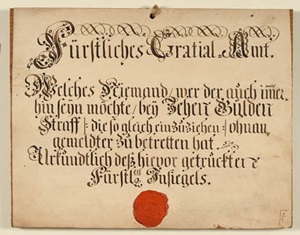 Fürstliches Gratial-Amt.
Welches Niemand / wer der auch im̅er
hin seyn möchte / bey Zehen Gulden
Straff /: die sogleich einzuziehen :/ ohnan,
gemeldter zu betretten hat.
Urkundtlich deß hievor getruckten
Fürstl: Insiegels.